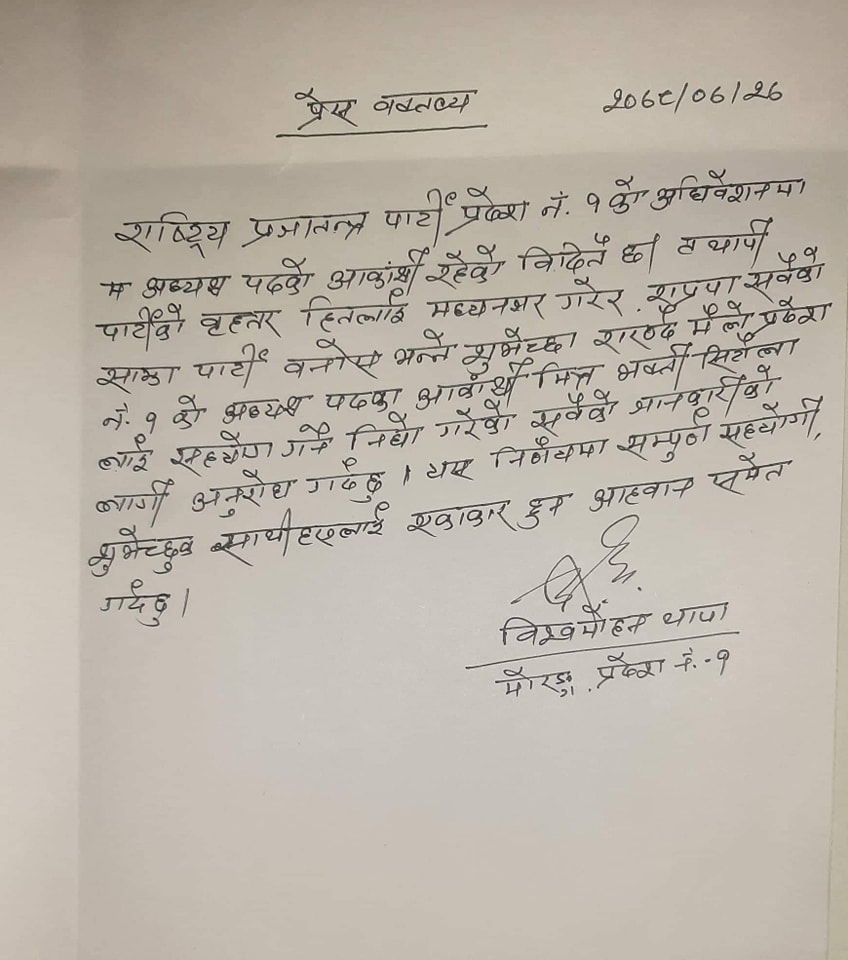 प्रेस वक्तव्य २०७९/०६/२६
राष्ट्रिय प्रजातन्त्र पार्टी प्रदेश नं. १ को अधिवेशनमा
म अध्यक्ष पदको आकांक्षी रहेको विदितै छ। तथापी
पार्टीको वृहत्तर हितलाई मध्यनजर गरेर, राप्रपा सवैको
साझा पार्टी वनोस भन्ने शुभेच्छा राख्दै मैले प्रदेश
नं. १ को अध्यक्ष पदका आकांक्षी मित्र भक्ती सिटौला
लाई सहयोग गर्ने निधो गरेको सवैको जानकारीको
लागी अनुरोध गर्दछु । यस निर्णयमा सम्पुर्ण सहयोगी,
शुभेच्छुक साथीहरुलाई एकाकार हुन आहवान समेत
गर्दछु।
विश्वमोहन थापा
मोरङ्ग, प्रदेश नं.-१